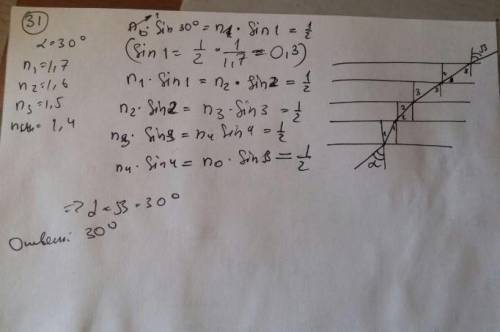 31
α=30°
n₁=1,7
n₂=1,6
n₃=1,5
1,4
· Sin 30° = n₁ · Sin 1 = 1/2
(Sin 1 = 1/2 · 1/1,7 = 0,3)
n₁ · Sin 1 = n₂ · Sin 2 = 1/2
n₂ · Sin 2 = n₃ · Sin 3 = 1/2
n₃ · Sin 3 = n₄ Sin 4 = 1/2
n₄ · Sin 4 = n₀ · Sin β = 1/2
=> α = β = 30°
Ответ: 30°
β
α